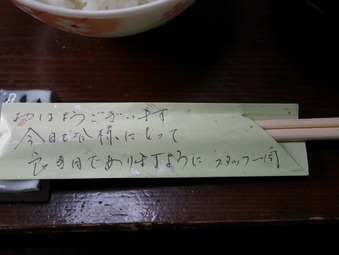 おはようございます
今日も皆様にとって
良き日でありますように スタッフ一同